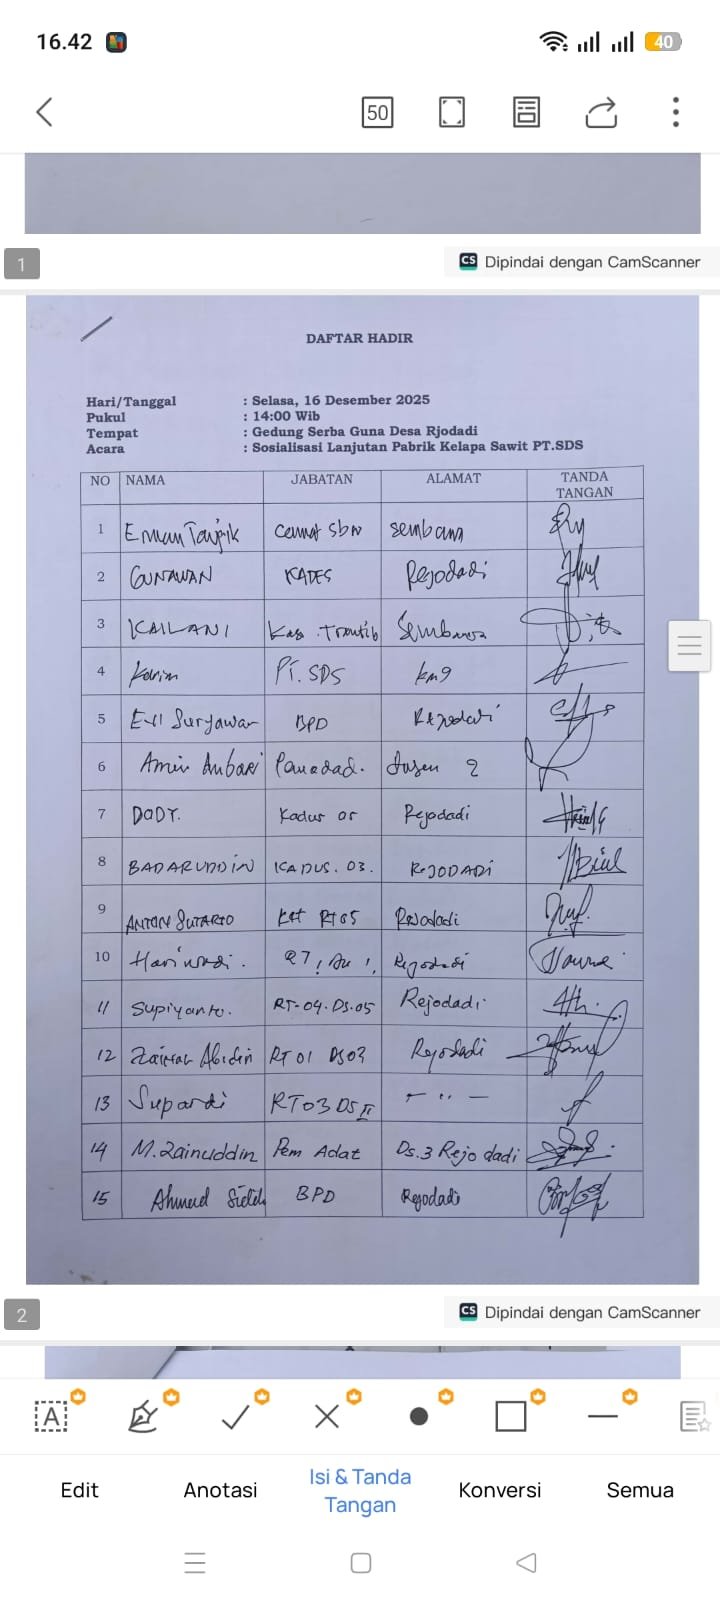 16.42
40
50
1
CS Dipindai dengan CamScanner
DAFTAR HADIR
Hari/Tanggal : Selasa, 16 Desember 2025
Pukul : 14:00 Wib
Tempat : Gedung Serba Guna Desa Rjodadi
Acara : Sosialisasi Lanjutan Pabrik Kelapa Sawit PT.SDS
NO NAMA JABATAN ALAMAT TANDA TANGAN
1 Eman Taufik Camat sbw sembawa
2 GUNAWAN KADES Rejodadi
3 KAILANI Kas Trantib Sembawa
4 Karim PT. SDS km9
5 Suryawan BPD Rejodadi
6 Amir Anbari dusun 2
7 DODY. Kadus 01 Rejodadi
8 BADARUDDIN KADUS. 03. REJODADI
9 ANTON SUTARTO Ket Rt 05 Rejodadi
10 Rejodadi
11 Supiyanto. RT-04.DS.05 Rejodadi
12 Zainal Abidin RT 01 DS 03 Rejodadi
13 Supardi RT03 DS II - " -
14 M. Zainuddin Pem Adat Ds. 3 Rejo dadi
15 Ahmad BPD Rejodadi
2
CS Dipindai dengan CamScanner
A
Edit Anotasi Isi & Tanda Tangan Konversi Semua